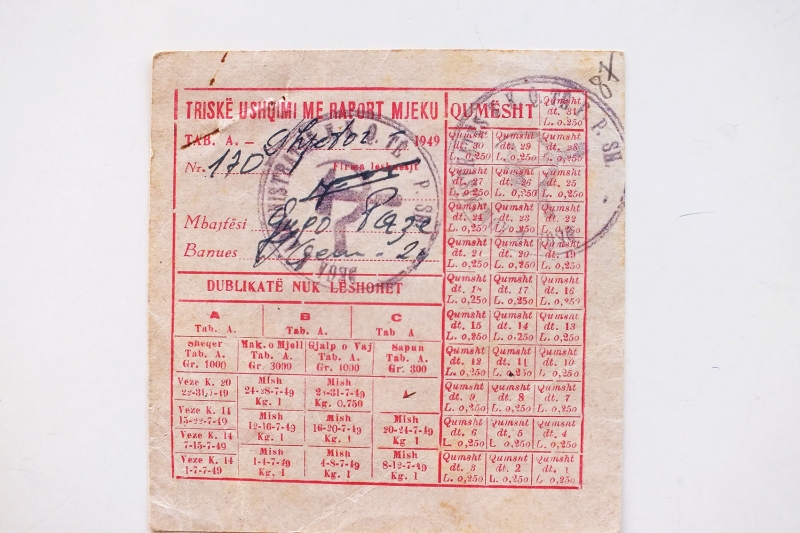 87
TRISKË USHQIMI ME RAPORT MJEKU
TAB. A. – 1949
Nr. 170 Firma leshuesit
Mbajtësi
Banues
DUBLIKATË NUK LËSHOHET
A B C
Tab. A. Tab. A. Tab A
Sheqer Mak. o Mjell Gjalp o Vaj Sapun
Tab. A. Tab. A. Tab. A. Tab. A.
Gr. 1000 Gr. 3000 Gr. 1000 Gr. 300
Veze K. 20 Mish Mish
24-28-7-49
Kg. 1 Kg. 0.750
Veze K. 14 Mish Mish Mish
15-22-7-49 12-16-7-49 16-20-7-49 20-24-7-49
Kg. 1 Kg. 1 Kg. 1
Veze K. 14 Mish Mish Mish
7-15-7-49 1-4-7-49 4-8-7-49 8-12-7-49
Veze K. 14 Kg. 1 Kg. 1 Kg. 1
1-7-7-49
QUMËSHT
Qumsht dt. 31 L. 0.250
Qumsht dt. 30 L. 0,250 Qumsht dt. 29 L. 0,250 Qumsht dt. 28 L. 0,250
Qumsht dt. 27 L. 0,250 Qumsht dt. 26 L. 0,250 Qumsht dt. 25 L. 0,250
Qumsht dt. 24 L. 0,250 Qumsht dt. 23 L. 0,250 Qumsht dt. 22 L. 0,250
Qumsht dt. 21 L. 0,250 Qumsht dt. 20 L. 0,250 Qumsht dt. 19 L. 0,250
Qumsht dt. 18 L. 0,250 Qumsht dt. 17 L. 0,250 Qumsht dt. 16 L. 0,250
Qumsht dt. 15 L. 0,250 Qumsht dt. 14 L. 0,250 Qumsht dt. 13 L. 0,250
Qumsht dt. 12 L. 0,250 Qumsht dt. 11 L. 0,250 Qumsht dt. 10 L. 0,250
Qumsht dt. 9 L. 0,250 Qumsht dt. 8 L. 0,250 Qumsht dt. 7 L. 0,250
Qumsht dt. 6 L. 0,250 Qumsht dt. 5 L. 0,250 Qumsht dt. 4 L. 0,250
Qumsht dt. 3 L. 0,250 Qumsht dt. 2 L. 0,250 Qumsht dt. 1 L. 0,250